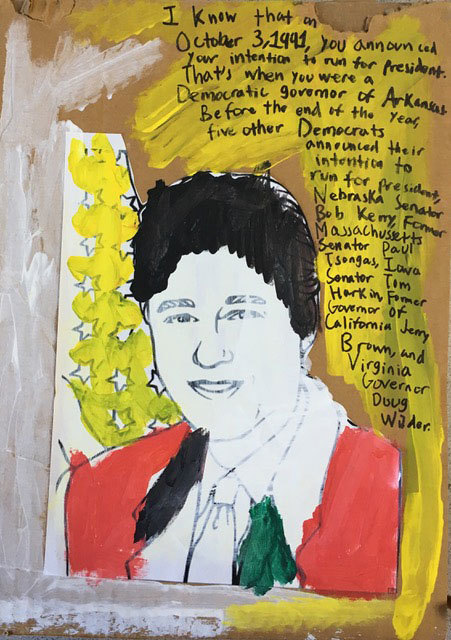 I Know that on
October 3, 1991, you announced
your intention to run for president.
That's when you were a
Democratic governor of Arkansas.
Before the end of the year,
five other Democrats
announced their
intention to
run for president,
Nebraska Senator
Bob Kerry, Former
Massachussetts
Senator Paul
Tsongas, Iowa
Senator Tom
Harkin, Former
Governor of
California Jerry
Brown, and
Virginia
Governor
Doug
Wilder.